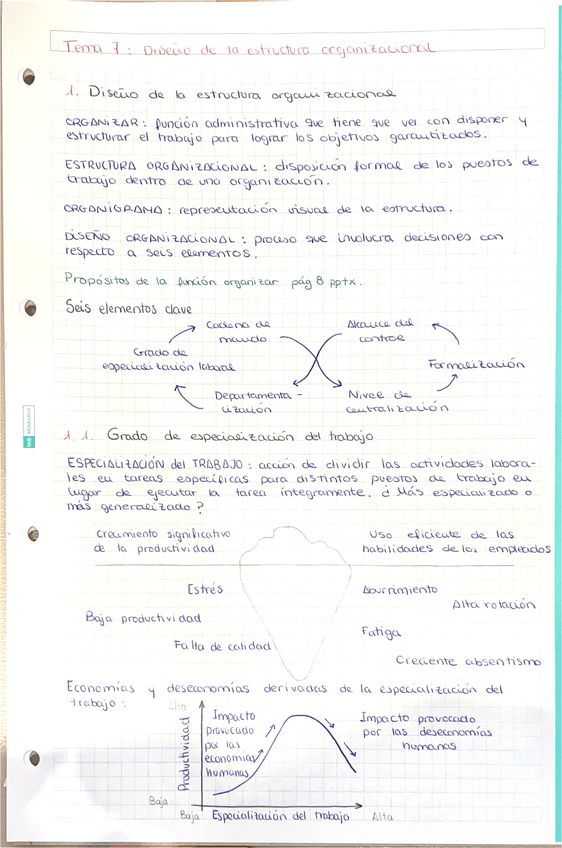 Tema 7: Diseño de la estructura organizacional
1. Diseño de la estructura organizacional
ORGANIZAR: función administrativa que tiene que ver con disponer y
estructurar el trabajo para lograr los objetivos garantizados.
ESTRUCTURA ORGANIZACIONAL: disposición formal de los puestos de
trabajo dentro de una organización.
ORGANIGRAMA: representación visual de la estructura.
DISEÑO ORGANIZACIONAL: proceso que involucra decisiones con
respecto a seis elementos.
Propósitos de la función organizar pág 8 pptx.
Seis elementos clave
Cadena de
mando
Alcance del
control
Grado de
especialización laboral
Formalización
Departamenta-
lización
Nivel de
centralización
1.1. Grado de especialización del trabajo
ESPECIALIZACIÓN del TRABAJO: acción de dividir las actividades labora-
les en tareas específicas para distintos puestos de trabajo en
lugar de ejecutar la tarea íntegramente. ¿Más especializado o
más generalizado?
Crecimiento significativo
de la productividad
Uso eficiente de las
habilidades de los empleados
Estrés
Aburrimiento
Alta rotación
Baja productividad
Fatiga
Falta de calidad
Creciente absentismo
Economías y deseconomías derivadas de la especialización del
trabajo:
Alta
Productividad
Impacto
provocado
por las
economías
humanas
Impacto provocado
por las deseconomías
humanas
Baja
Baja Especialización del trabajo Alta